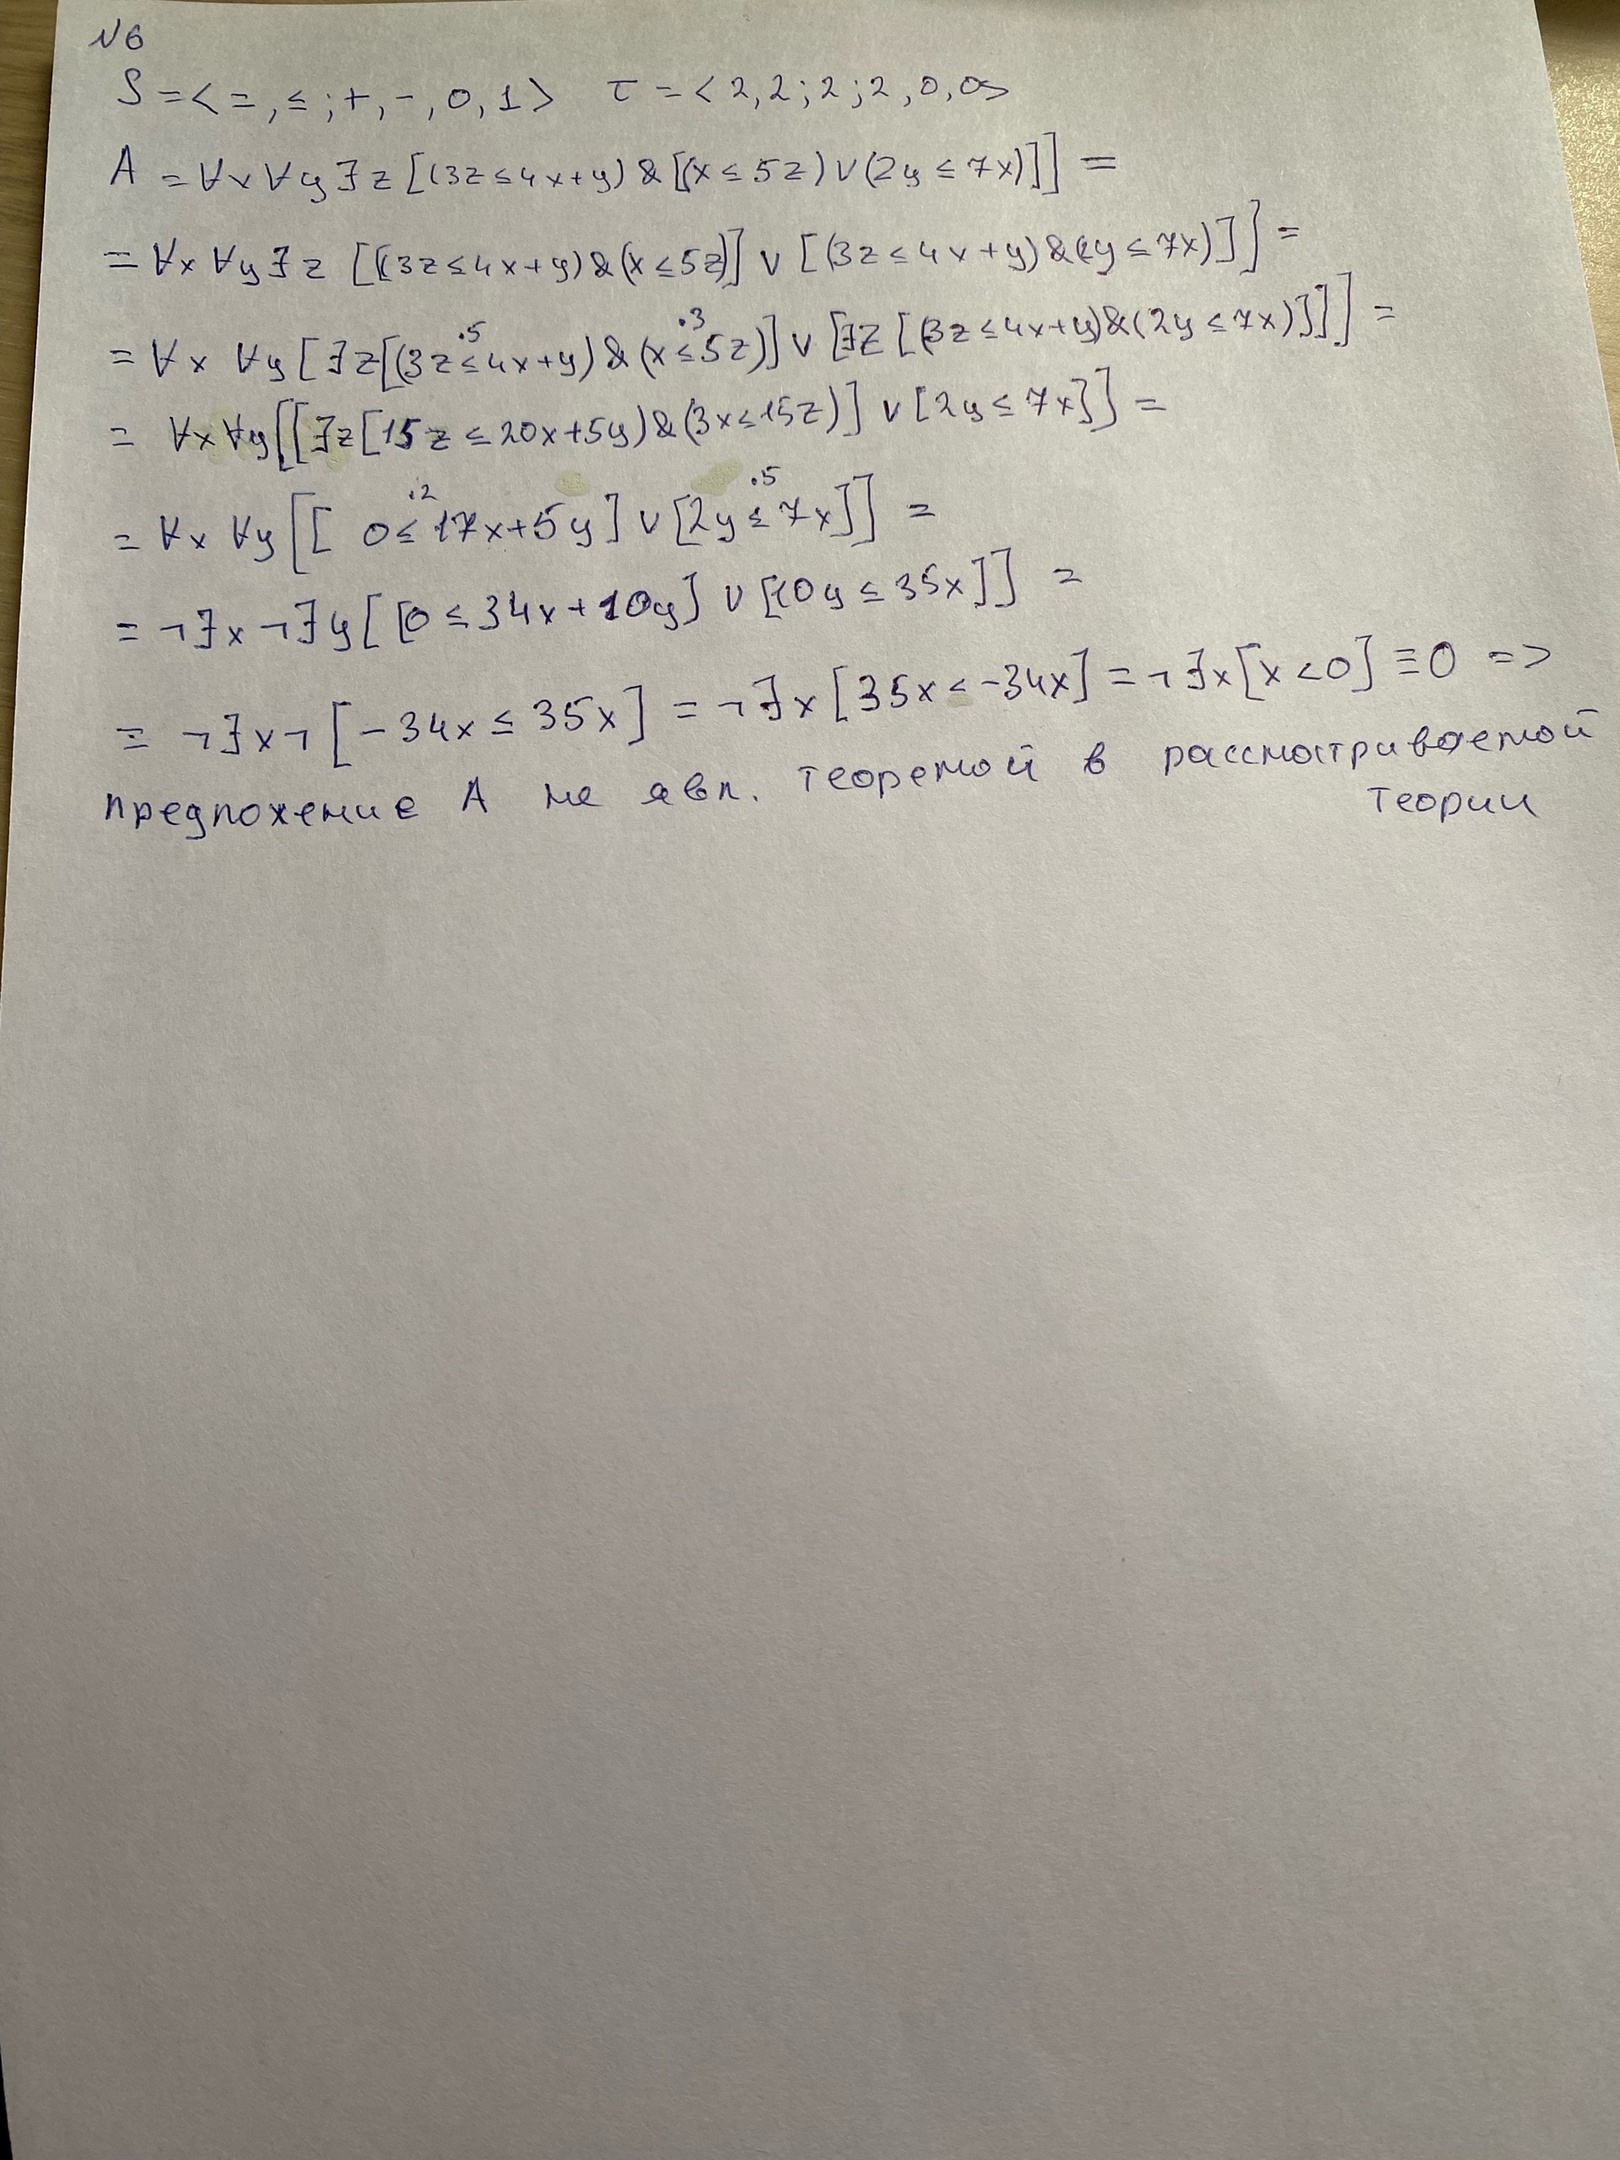 N6
S = < =, ≤ ; +, -, 0, 1 > τ = < 2, 2 ; 2 ; 2, 0, 0>
A = ∀x ∀y ∃z [(3z ≤ 4x+y) & [(x ≤ 5z) ∨ (2y ≤ 7x)]] =
= ∀x ∀y ∃z [[(3z ≤ 4x+y) & (x ≤ 5z)] ∨ [(3z ≤ 4x+y) & (2y ≤ 7x)]] =
·5 ·3
= ∀x ∀y [∃z[(3z ≤ 4x+y) & (x ≤ 5z)] ∨ [∃z [(3z ≤ 4x+y) & (2y ≤ 7x)]]] =
= ∀x ∀y [[∃z [15z ≤ 20x+5y) & (3x ≤ 15z)] ∨ [2y ≤ 7x]] =
·2 ·5
= ∀x ∀y [[ 0 ≤ 17x+5y] ∨ [2y ≤ 7x]] =
= ¬∃x ¬∃y [[0 ≤ 34x + 10y] ∨ [10y ≤ 35x]] =
= ¬∃x ¬ [-34x ≤ 35x] = ¬∃x [35x < -34x] = ¬∃x [x < 0] ≡ 0 =>
предложение A не явл. теоремой в рассматриваемой
теории